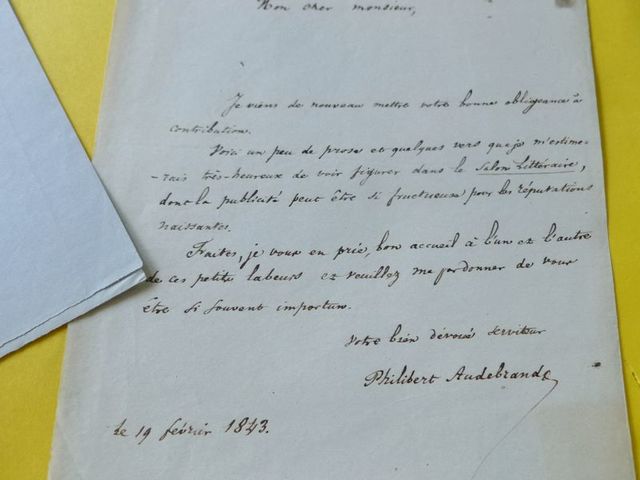 Mon cher monsieur,
Je viens de nouveau mettre votre bonne obligeance à
contribution.
Voici un peu de prose et quelques vers que je m'estime-
-rais très-heureux de voir figurer dans le Salon Littéraire,
dont la publicité peut être si fructueuse pour les réputations
naissantes.
Faites, je vous en prie, bon accueil à l'un et l'autre
de ces petits labeurs et veuillez me pardonner de vous
être si souvent importun.
Votre bien dévoué serviteur
Philibert Audebrand
le 19 février 1843.